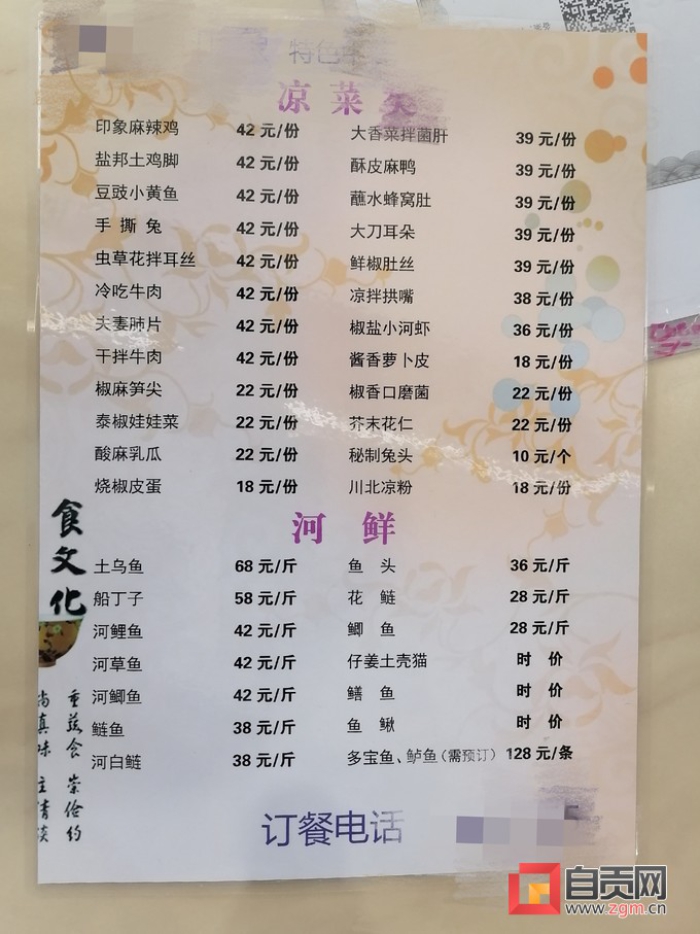 特色
凉菜类
印象麻辣鸡 42 元/份
盐邦土鸡脚 42 元/份
豆豉小黄鱼 42 元/份
手 撕 兔 42 元/份
虫草花拌耳丝 42 元/份
冷吃牛肉 42 元/份
夫妻肺片 42 元/份
干拌牛肉 42 元/份
椒麻笋尖 22 元/份
泰椒娃娃菜 22 元/份
酸麻乳瓜 22 元/份
烧椒皮蛋 18 元/份
大香菜拌菌肝 39 元/份
酥皮麻鸭 39 元/份
蘸水蜂窝肚 39 元/份
大刀耳朵 39 元/份
鲜椒肚丝 39 元/份
凉拌拱嘴 38 元/份
椒盐小河虾 36 元/份
酱香萝卜皮 18 元/份
椒香口磨菌 22 元/份
芥末花仁 22 元/份
秘制兔头 10 元/个
川北凉粉 18 元/份
河 鲜
土乌鱼 68 元/斤
船丁子 58 元/斤
河鲤鱼 42 元/斤
河草鱼 42 元/斤
河鲫鱼 42 元/斤
鲢鱼 38 元/斤
河白鲢 38 元/斤
鱼 头 36 元/斤
花 鲢 28 元/斤
鲫 鱼 28 元/斤
仔姜土壳猫 时 价
鳝 鱼 时 价
鱼 鳅 时 价
多宝鱼、鲈鱼（需预订） 128 元/条
食文化
重兹食 崇俭约
尚真味 主清淡
订餐电话
自贡网
www.zgm.cn